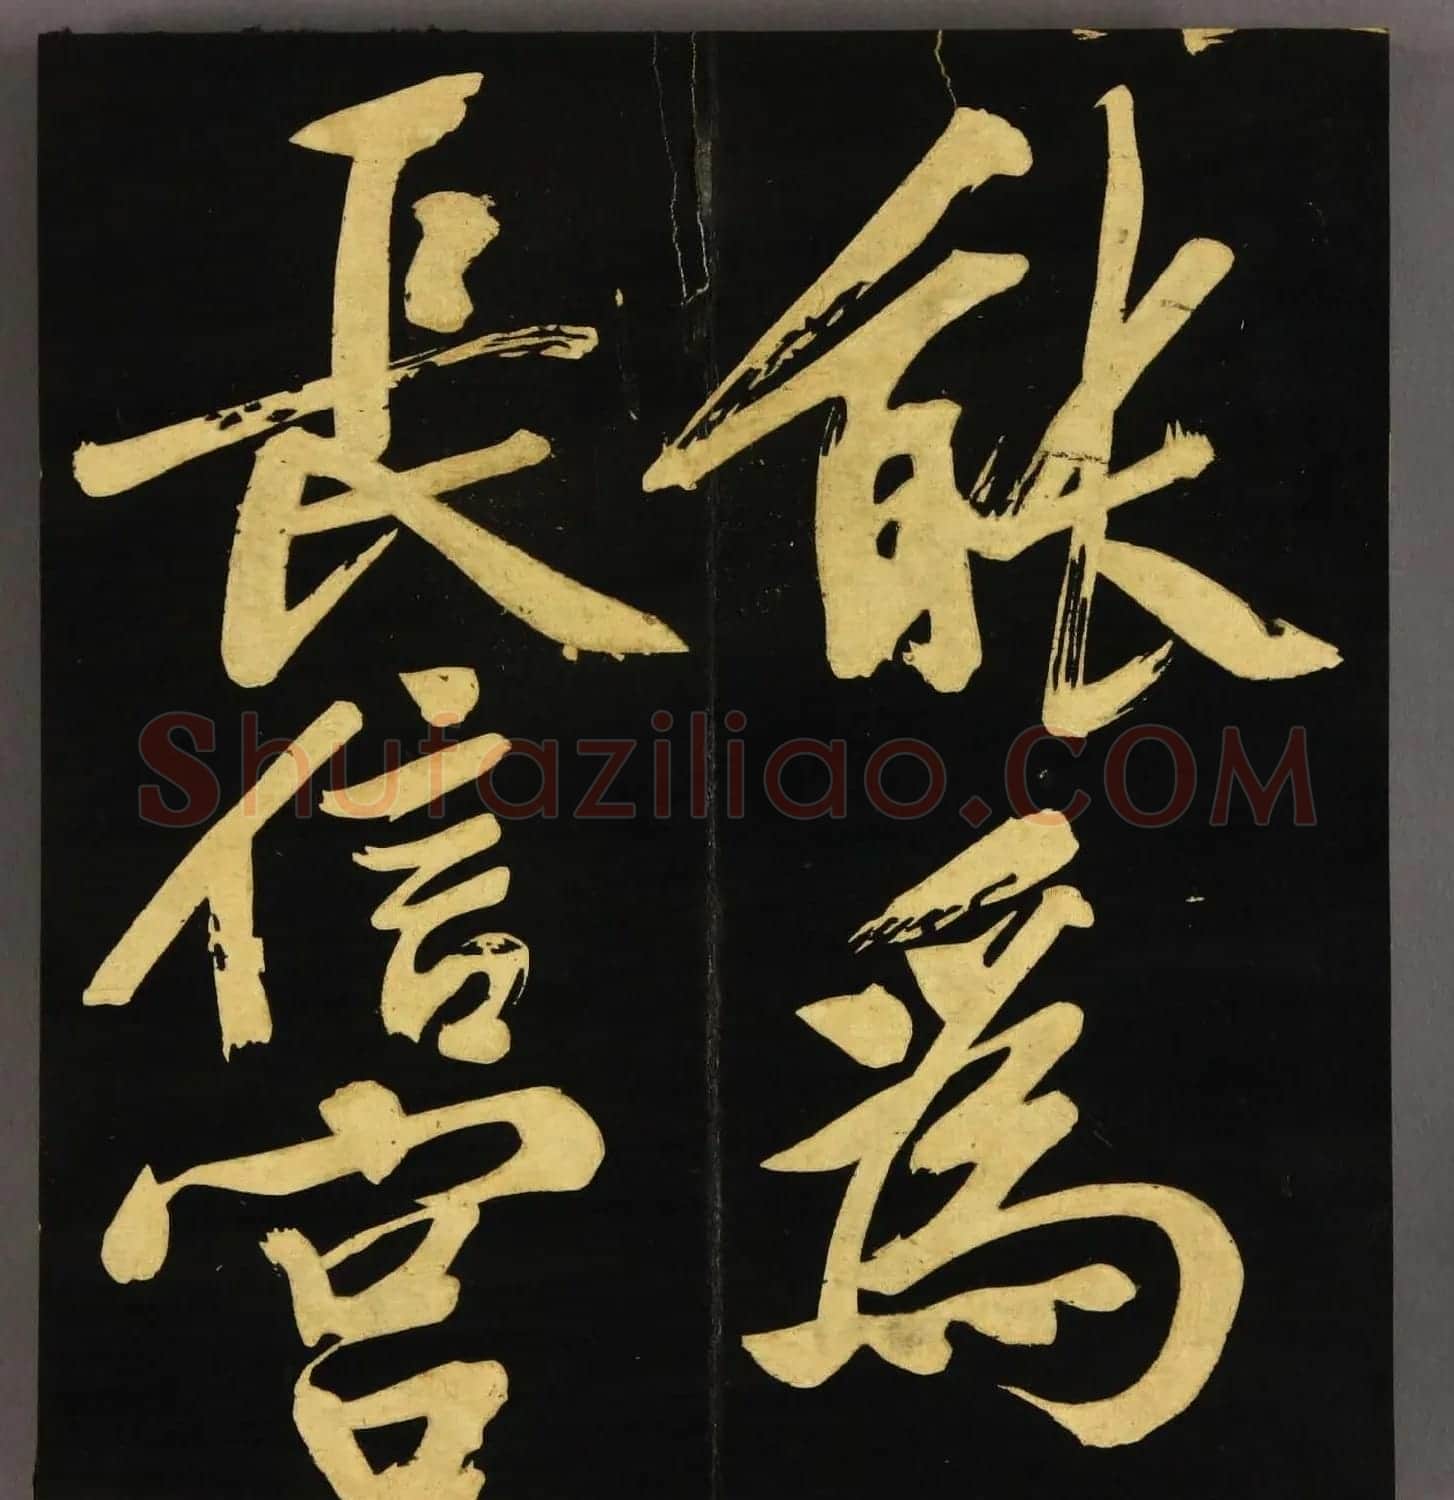 能為
長信宮
Shufaziliao.COM